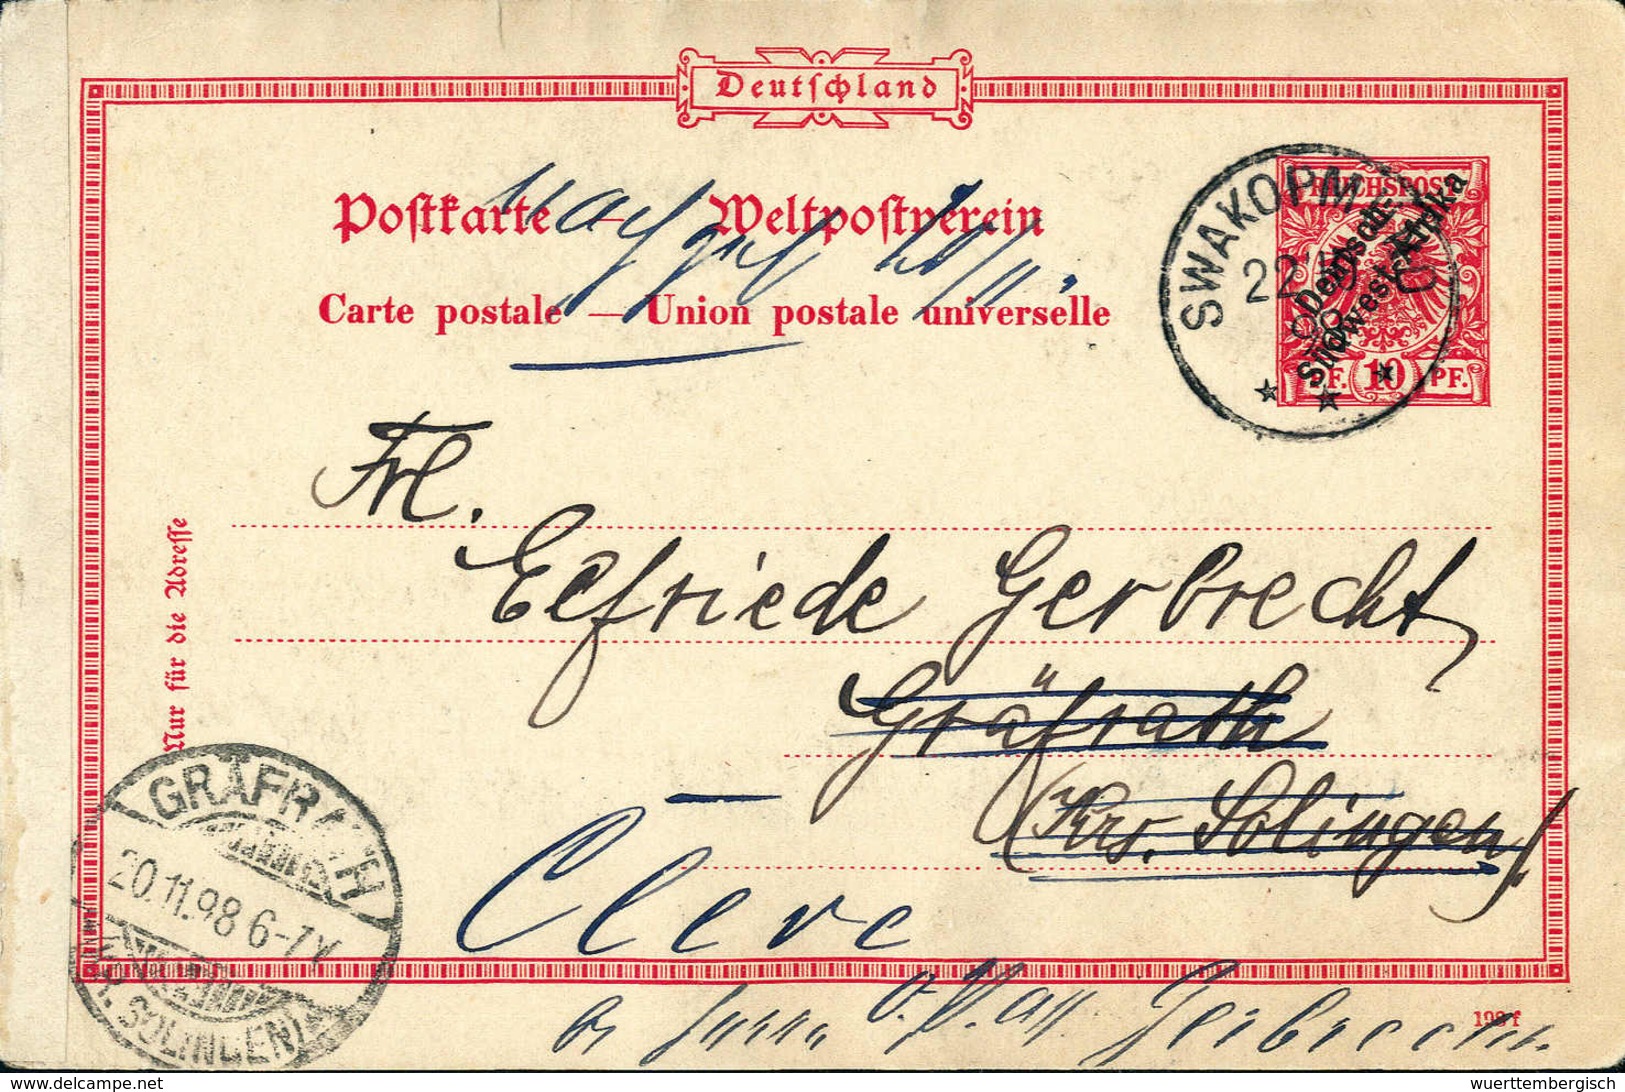 Deutschland
Postkarte — Weltpostverein
Carte postale — Union postale universelle
REICHSPOST
Deutsch-
Südwest-Afrika
PF. 10 PF.
SWAKOPM
22
98
Frl.
Elfriede Gerbrecht,
Gräfrath
(Krs. Solingen)
Cleve
Nur für die Adresse
GRÄFRATH
20.11.98 6-7 N
KR. SOLINGEN
Gerbrecht.
198f
www.delcampe.net
wuerttembergisch